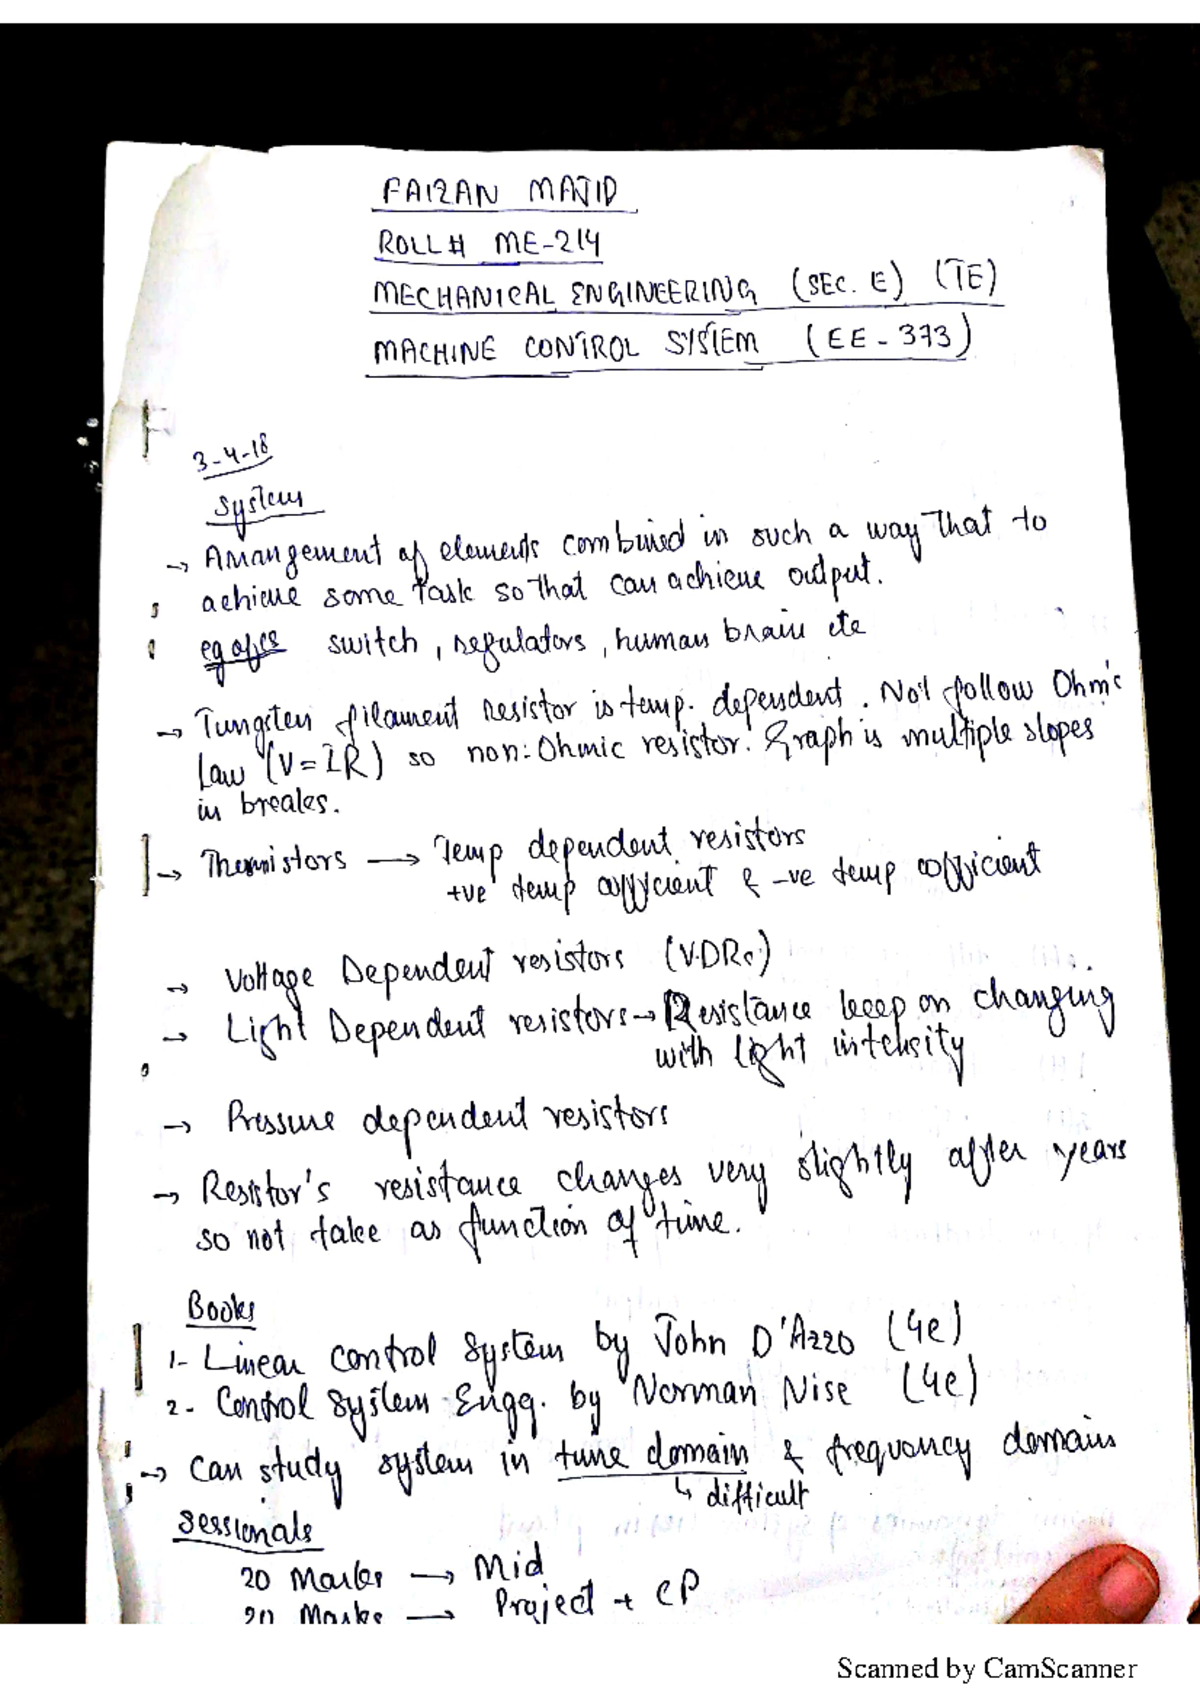 FAIZAN MAJID
ROLL # ME-214
MECHANICAL ENGINEERING (SEC. E) (TE)
MACHINE CONTROL SYSTEM (EE-373)
3-4-18
System
→ Arrangement of elements combined in such a way that to
achieve some task so that can achieve output.
eg switch, regulators, human brain etc
→ Tungsten filament resistor is temp. dependent. Not follow Ohm's
Law (V=IR) so non-Ohmic resistor. Graph is multiple slopes
in breaks.
→ Thermistors → Temp dependent resistors
+ve temp cofficient & -ve temp cofficient
→ Voltage Dependent resistors (VDRs)
→ Light Dependent resistors → Resistance keep on changing
with light intensity
→ Pressure dependent resistors
→ Resistor's resistance changes very slightly after years
so not take as function of time.
Books
1- Linear control System by John D'Azzo (4e)
2- Control System Engg. by Norman Nise (4e)
→ Can study system in time domain & frequency domain
↳ difficult
Sessionals
20 Marks → Mid
20 Marks → Project + CP
Scanned by CamScanner